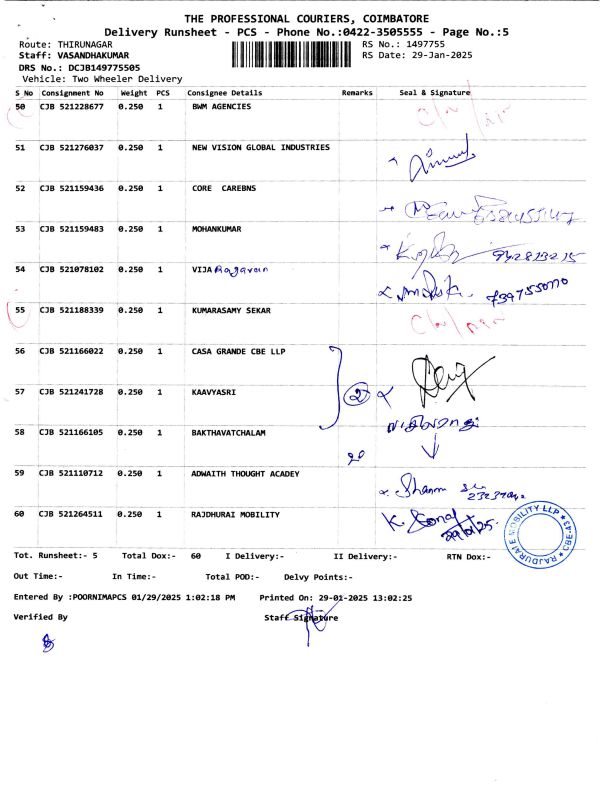 THE PROFESSIONAL COURIERS, COIMBATORE
Delivery Runsheet - PCS - Phone No.:0422-3505555 - Page No.:5
Route: THIRUNAGAR RS No.: 1497755
Staff: VASANDHAKUMAR RS Date: 29-Jan-2025
DRS No.: DCJB149775505
Vehicle: Two Wheeler Delivery
S No Consignment No Weight PCS Consignee Details Remarks Seal & Signature
50 CJB 521228677 0.250 1 BWM AGENCIES
51 CJB 521276037 0.250 1 NEW VISION GLOBAL INDUSTRIES
52 CJB 521159436 0.250 1 CORE CAREBNS
53 CJB 521159483 0.250 1 MOHANKUMAR
54 CJB 521078102 0.250 1 VIJA
55 CJB 521188339 0.250 1 KUMARASAMY SEKAR
56 CJB 521166022 0.250 1 CASA GRANDE CBE LLP
57 CJB 521241728 0.250 1 KAAVYASRI
58 CJB 521166105 0.250 1 BAKTHAVATCHALAM
59 CJB 521110712 0.250 1 ADWAITH THOUGHT ACADEY
60 CJB 521264511 0.250 1 RAJDHURAI MOBILITY
Tot. Runsheet:- 5 Total Dox:- 60 I Delivery:- II Delivery:- RTN Dox:-
Out Time:- In Time:- Total POD:- Delvy Points:-
Entered By :POORNIMAPCS 01/29/2025 1:02:18 PM Printed On: 29-01-2025 13:02:25
Verified By Staff Signature